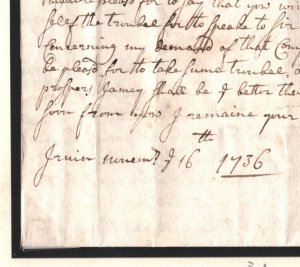 please for to say that you wou
self the trunbel for to speake to Sir
Concerning my demand of that Com
be pleasd for to take sume trunbel,
prosper: Jamey shall be ye better the
from you I remaine your
Jrvin novemr ye 16th 1736